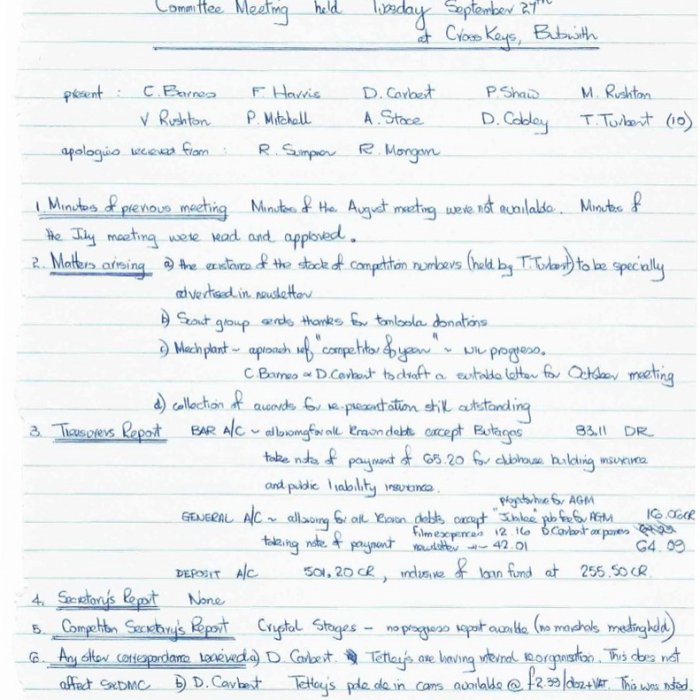 Committee Meeting held Tuesday September 27th
at Cross Keys, Bubwith
present : C. Barnes F Harris D. Carbert P. Shaw M. Rushton
V Rushton P. Mitchell A. Stace D. Cobley T. Turbert (10)
apologies recieved from : R. Simpson R. Morgan
1. Minutes of previous meeting Minutes of the August meeting were not available. Minutes of
the July meeting were read and approved.
2. Matters arising a) the existance of the stock of competition numbers (held by T. Turbert) to be specially
advertised in newsletter
b) Scout group sends thanks for tombola donations
c) Mechplant ~ aproach ref "competitor of year" ~ nil progress.
C Barnes & D. Carbert to draft a suitable letter for October meeting
d) collection of awards for re-presentation still outstanding
3. Treasurers Report BAR A/C ~ allowing for all known debts except Butagas 83.11 DR
take note of payment of 65.20 for clubhouse building insurance
and public liability insurance.
for AGM
GENERAL A/C ~ allowing for all known debts except "Jubilee" pub fee for AGM 16.06CR
taking note of payment film expenses 12.16 D Carbert expenses
newsletter 42.01 64.09
DEPOSIT A/C 501.20 CR, inclusive of loan fund at 255.50 CR.
4. Secretary's Report None
5. Competition Secretary's Report Crystal Stages - no progress report availble (no marshals meeting held)
6. Any other correspondance recieved a) D. Carbert. Tetley's are having internal reorganisation. This does not
affect SXDMC b) D. Carbert Tetley's pale ale in cans available @ £2.39/doz+VAT. This was noted